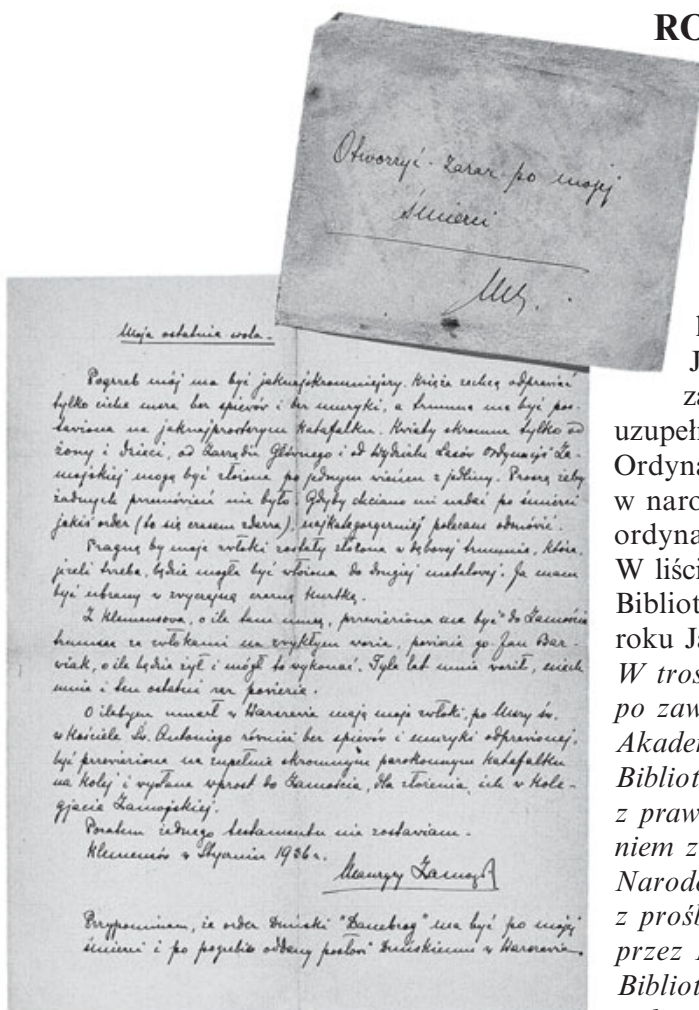 RO
Otworzyć zaraz po mojej
śmierci
MZ.
Moja ostatnia wola.-
Pogrzeb mój ma być jaknajskromniejszy. Księża zechcą odprawić
tylko cichą mszę bez śpiewów i bez muzyki, a trumna ma być pos-
tawiona na jaknajprostszym katafalku. Kwiaty skromne tylko od
żony i dzieci, od Zarządu Głównego i od Wydziału Lasów Ordynacji Za-
mojskiej mogą być złożone po jednym wieńcu z jedliny. Proszę żeby
żadnych przemówień nie było. Gdyby chciano mi nadać po śmierci
jakiś order (to się czasem zdarza), najkategoryczniej polecam odmówić.
Pragnę by moje zwłoki zostały złożone w dębowej trumnie, która,
jeżeli trzeba, będzie mogła być włożona do drugiej metalowej. Ja mam
być ubrany w zwyczajną czarną kurtkę.
Z Klemensowa, o ile tam umrę, przewieziona ma być do Zamościa
trumna ze zwłokami na zwykłym wozie, powiezie go Jan Bar-
wiak, o ile będzie żył i mógł to wykonać. Tyle lat mnie woził, niech
mnie i ten ostatni raz powiezie.
O ilebym umarł w Warszawie mają moje zwłoki, po Mszy św.
w Kościele Św. Antoniego również bez śpiewów i muzyki odprawionej,
być przewiezione na zupełnie skromnym parokonnym katafalku
na kolej i wysłane wprost do Zamościa, dla złożenia ich w Kole-
gjacie Zamojskiej.
Pozatem żadnego testamentu nie zostawiam.-
Klemensów w Styczniu 1936 r.
Maurycy Zamoyski
Przypominam, że order Duński "Danebrog" ma być po mojej
śmierci i po pogrzebie oddany posłowi Duńskiemu w Warszawie.
J
za
uzupeł
Ordyna
w naro
ordyna
W liści
Bibliot
roku Ja
W tros
po zaw
Akader
Bibliot
z praw
niem z
Narodo
z prośb
przez
Bibliot